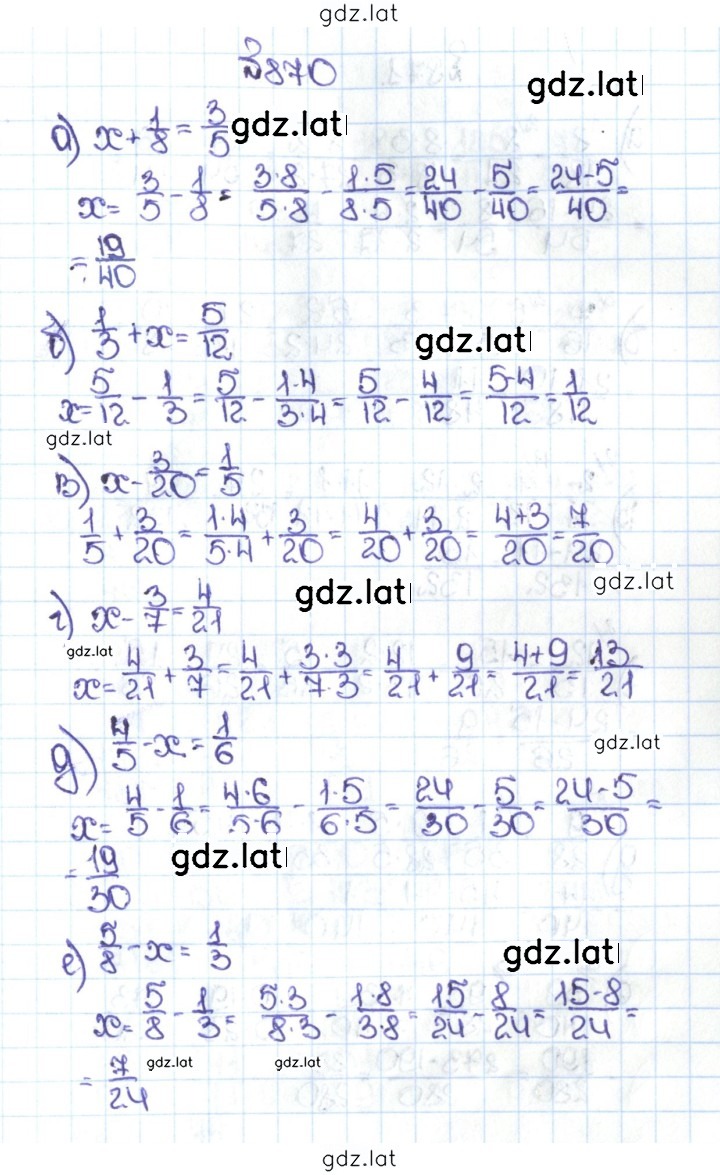 gdz.lat
№870
gdz.lat
а) x + 1/8 = 3/5 gdz.lat
x = 3/5 - 1/8 = 3·8/5·8 - 1·5/8·5 = 24/40 - 5/40 = 24-5/40 =
= 19/40
б) 1/3 + x = 5/12 gdz.lat
x = 5/12 - 1/3 = 5/12 - 1·4/3·4 = 5/12 - 4/12 = 5-4/12 = 1/12
gdz.lat
в) x - 3/20 = 1/5
1/5 + 3/20 = 1·4/5·4 + 3/20 = 4/20 + 3/20 = 4+3/20 = 7/20
gdz.lat
г) x - 3/7 = 4/21 gdz.lat
gdz.lat
x = 4/21 + 3/7 = 4/21 + 3·3/7·3 = 4/21 + 9/21 = 4+9/21 = 13/21
д) 4/5 - x = 1/6 gdz.lat
x = 4/5 - 1/6 = 4·6/5·6 - 1·5/6·5 = 24/30 - 5/30 = 24-5/30 =
= 19/30 gdz.lat
е) 5/8 - x = 1/3 gdz.lat
x = 5/8 - 1/3 = 5·3/8·3 - 1·8/3·8 = 15/24 - 8/24 = 15-8/24 =
= 7/24 gdz.lat gdz.lat
gdz.lat